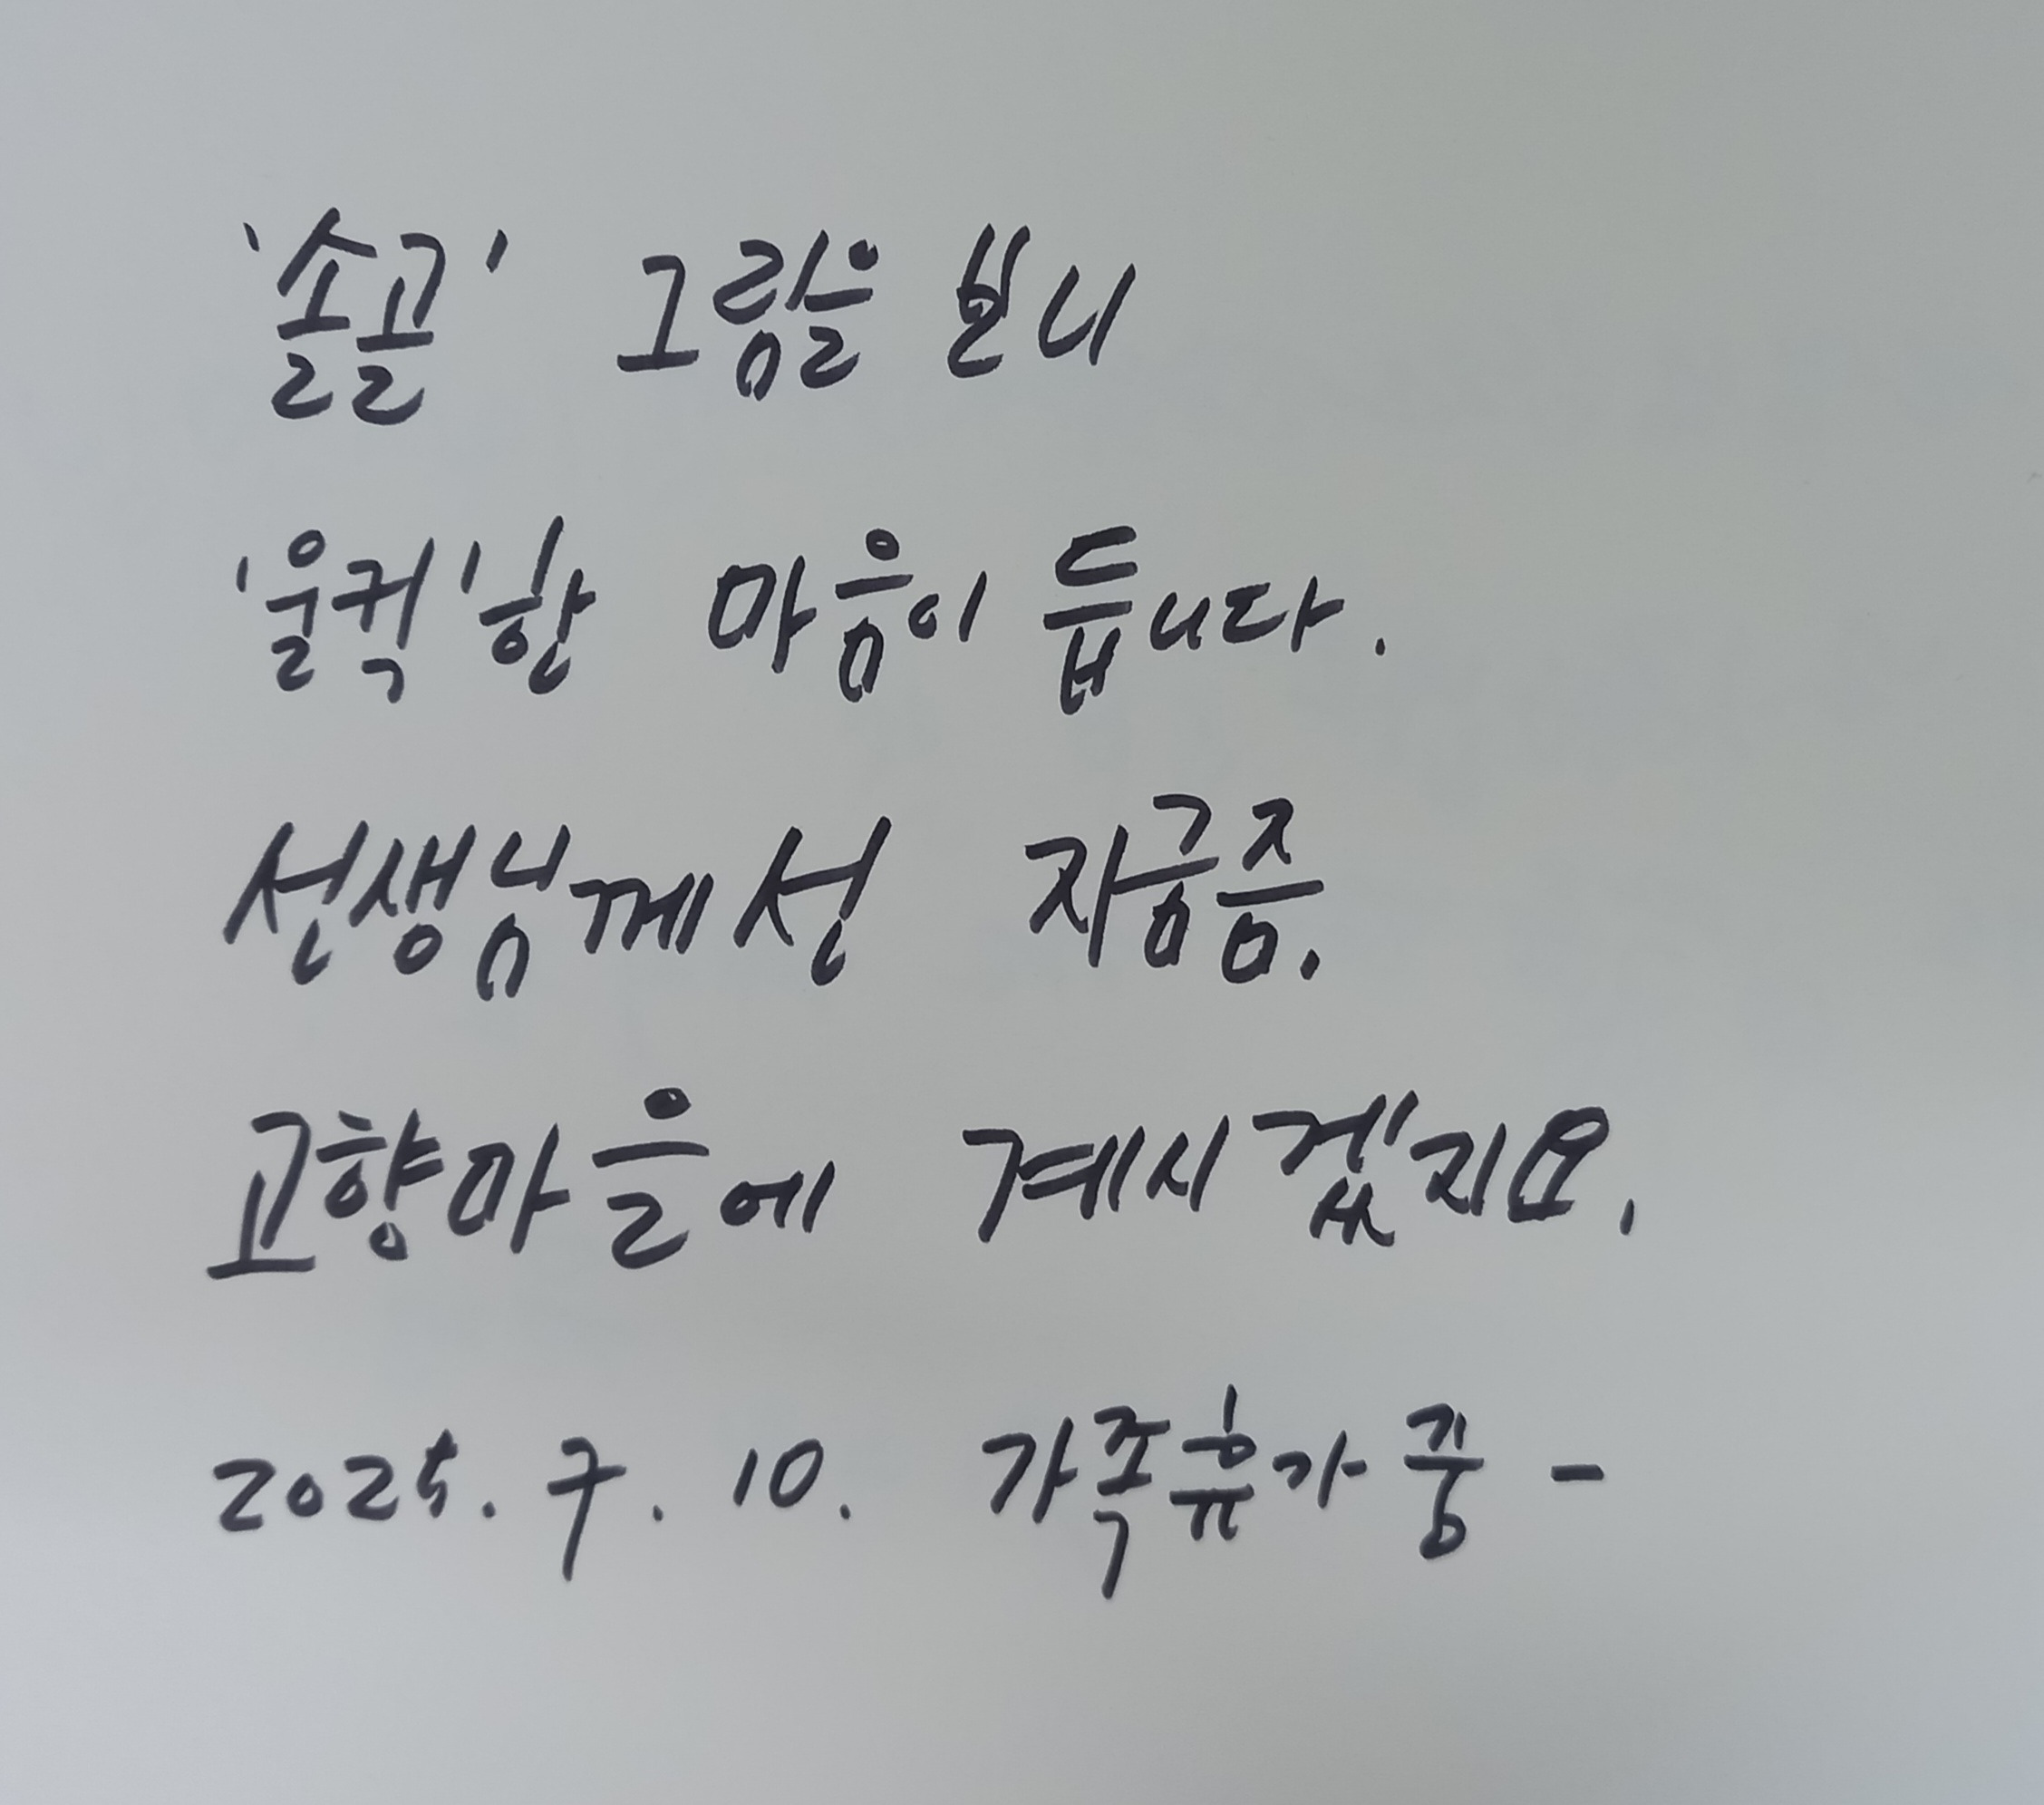 '솔골' 그림을 보니
'울컥'한 마음이 듭니다.
선생님께선 지금쯤.
고향마을에 계시겠지요.
2025. 7. 10. 가족휴가 중 -